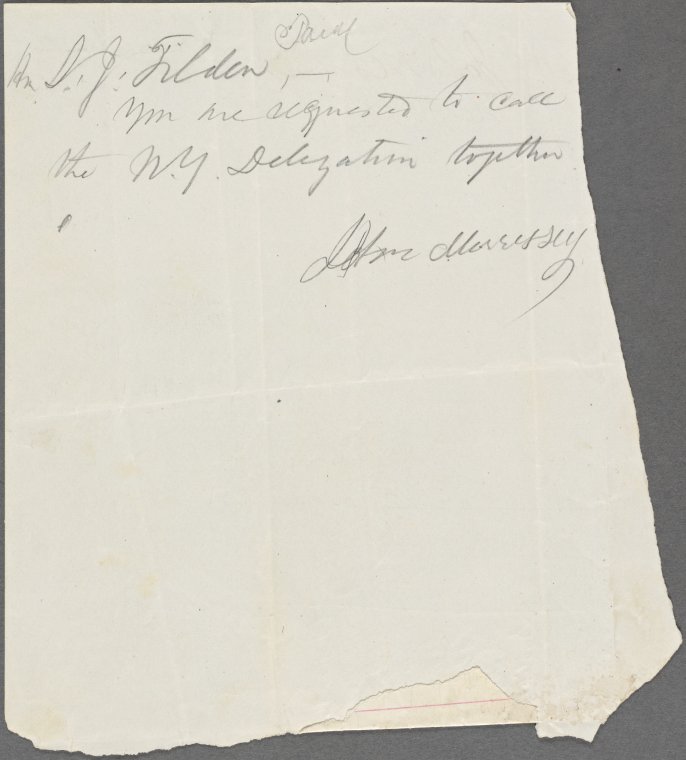 Paid
Hon S. J. Tilden,
You are requested to call
the N.Y. Delegation together
John Morrissey